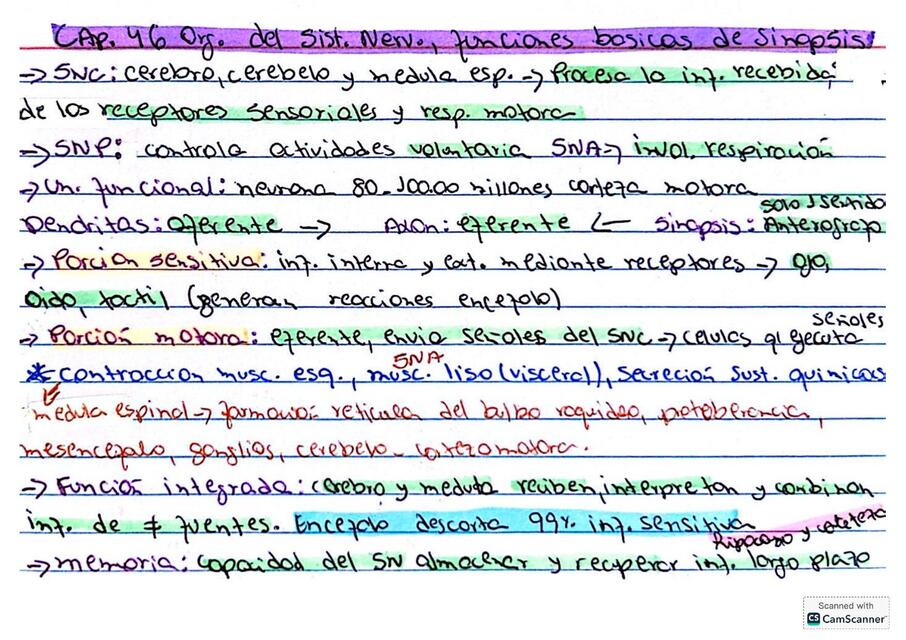 CAP. 46 Org. del Sist. Nerv., funciones basicas de Sinapsis
-> SNC: cerebro, cerebelo y medula esp. -> Procesa la inf. recebida
de los receptores sensoriales y resp. motora
-> SNP: controla actividades voluntaria SNA => invol. respiración
-> Un. funcional: neurona 80-100.00 millones corteza motora
solo 1 sentido
Dendritas: aferente -> Axon: eferente <- Sinapsis: Anterograp
-> Porcion sensitiva: inf. interna y ext. mediante receptores -> ojo,
oido, tactil (generan reacciones encefalo)
señales
-> Porción motora: eferente, envia señales del SNC -> celulas q' ejecuta
SNA
* contraccion musc. esq., musc. liso (visceral), secreción sust. quimicas
medula espinal -> formación reticula del bulbo raquideo, protoberancia,
mesencefalo, ganglios, cerebelo - cortezamotora.
-> Función integrada: cerebro y medula reciben, interpretan y combinan
inf. de ≠ fuentes. Encefalo descarta 99% inf. sensitiva
Hipocapo y corteza
-> memoria: capacidad del SN almacenar y recuperar inf. largo plazo
Scanned with
CS CamScanner